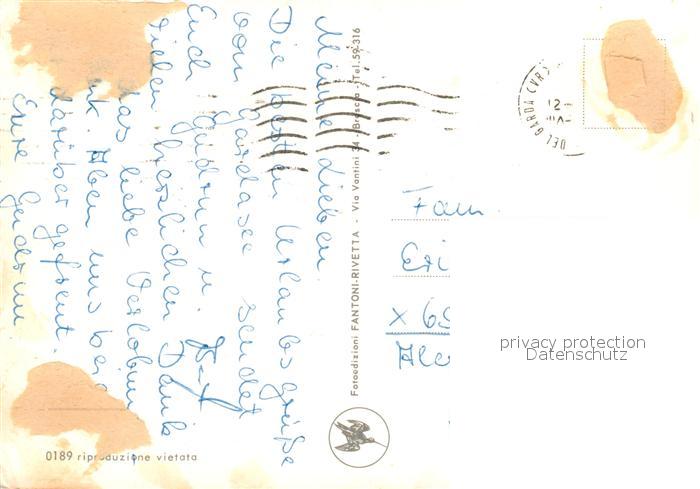 Meine Lieben.
Die besten Urlaubsgrüße
vom Gardasee sendet
Euch Gudrun u.
Vielen herzlichen Dank
das liebe
haben uns
darüber gefreut.
Eure Gudrun
Fotoedizioni FANTONI-RIVETTA - Via Vantini 34 - Brescia - Tel. 59 316
0189 riproduzione vietata
DEL GARDA (VR)
12-
Fam.
X 65
privacy protection
Datenschutz